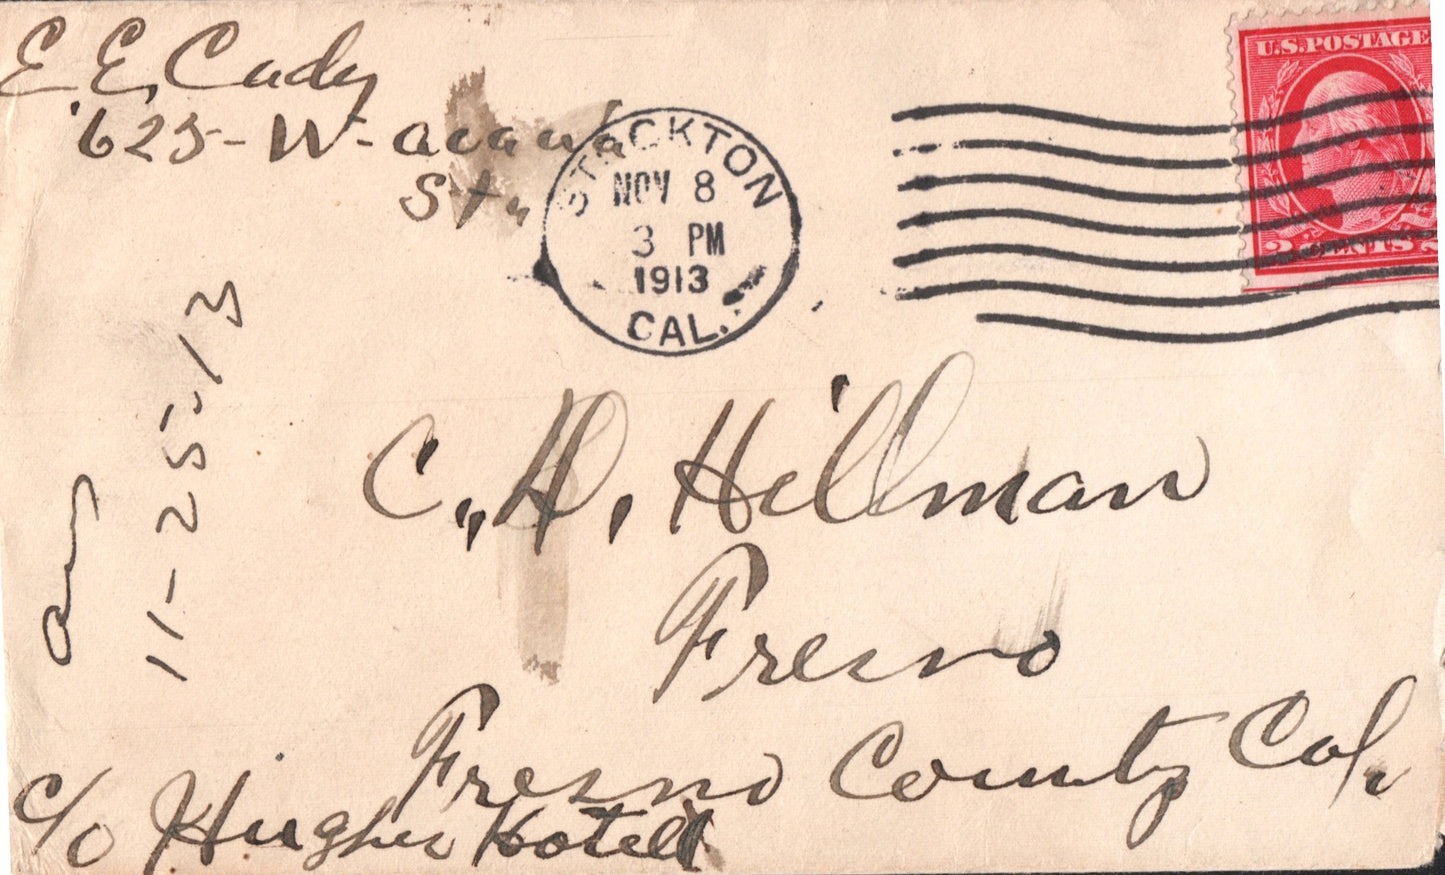 E. E. Cady
625 - W - Acacia
St.
STOCKTON
NOV 8
3 PM
1913
CAL.
U.S. POSTAGE
2 CENTS 2
C. H. Hillman
Fresno
Fresno County Cal.
c/o Hughes Hotel
11-25-13